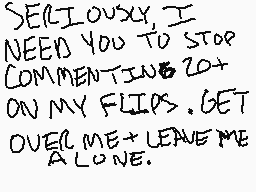 SERIOUSLY, I
NEED YOU TO STOP
COMMENTING 20+
ON MY FLIPS. GET
OVER ME + LEAVE ME
ALONE.